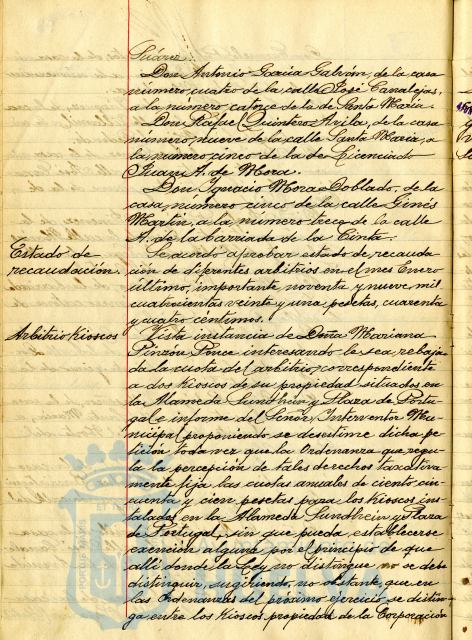 Suárez.
Don Antonio García Galván, de la casa
número cuatro de la calle José Canalejas,
a la número catorce de la de Santa María.
Don Rafael Quintero Avila, de la casa
número nueve de la calle Santa María, a
la número cinco de la de Licenciado
Juan A. de Mora.
Don Ignacio Mora Doblado, de la
casa número cinco de la calle Ginés
Martín, a la número trece de la calle
A. de la barriada de la Cinta.
Estado de
recaudación.
Se acordó aprobar estado de recauda
ción de diferentes arbitrios en el mes Enero
último, importante noventa y nueve mil
cuatrocientas veinte y una pesetas, cuarenta
y cuatro céntimos.
Arbitrio Kioscos
Vista instancia de Doña Mariana
Pinzón Ponce interesando le sea rebaja
da la cuota del arbitrio, correspondiente
a dos Kioscos de su propiedad situados en
la Alameda Sundheim y Plaza de Portu
gal e informe del Señor Interventor Mu
nicipal proponiendo se desestime dicha pe
tición toda vez que la Ordenanza que regu
la la percepción de tales derechos taxativa
mente fija las cuotas anuales de ciento cin
cuenta y cien pesetas para los Kioscos ins
talados en la Alameda Sundheim y Plaza
de Portugal, sin que pueda establecerse
exención alguna por el principio de que
allí donde la Ley no distingue no se debe
distinguir, sugiriendo, no obstante, que en
las Ordenanzas del próximo ejercicio se distin
ga entre los Kioscos propiedad de la Corporación